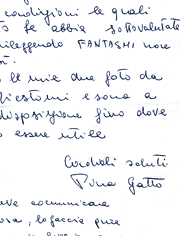 condizioni le quali
to se abbia sottovalutate
rileggendo FANTASMI non
le mie due foto da
sono a
disposizione fino dove
essere utile
Cordiali saluti
Pina Gatto
comunicare
lo faccia pure